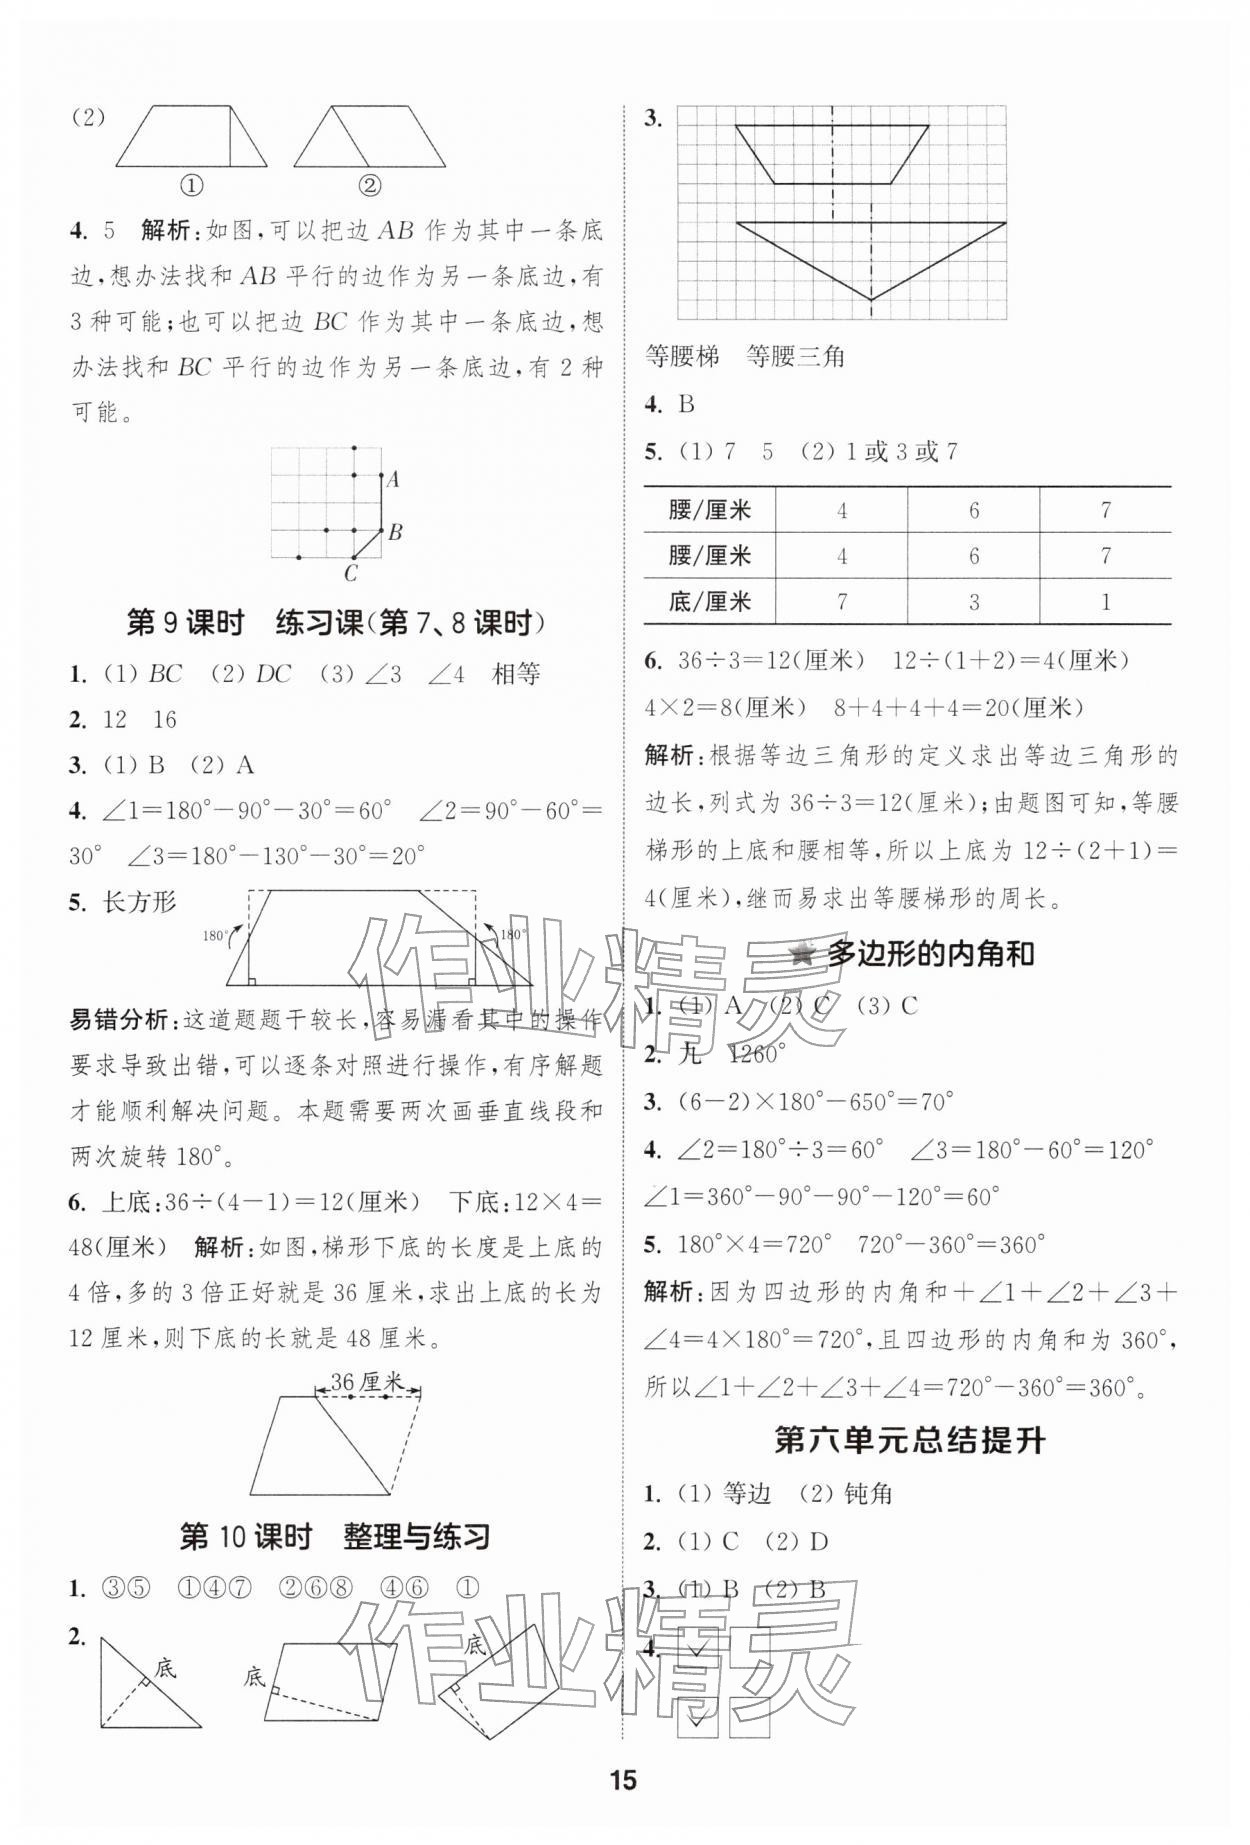 (2)
① ②
4. 5 解析:如图,可以把边 AB 作为其中一条底
边,想办法找和 AB 平行的边作为另一条底边,有
3 种可能;也可以把边 BC 作为其中一条底边,想
办法找和 BC 平行的边作为另一条底边,有 2 种
可能。
A
B
C
第 9 课时 练习课(第 7、8 课时)
1. (1) BC (2) DC (3) ∠3 ∠4 相等
2. 12 16
3. (1) B (2) A
4. ∠1=180°-90°-30°=60° ∠2=90°-60°=
30° ∠3=180°-130°-30°=20°
5. 长方形
180° 180°
易错分析:这道题题干较长,容易漏看其中的操作
要求导致出错,可以逐条对照进行操作,有序解题
才能顺利解决问题。本题需要两次画垂直线段和
两次旋转 180°。
6. 上底:36÷(4-1)=12(厘米) 下底:12×4=
48(厘米) 解析:如图,梯形下底的长度是上底的
4 倍,多的 3 倍正好就是 36 厘米,求出上底的长为
12 厘米,则下底的长就是 48 厘米。
36 厘米
第 10 课时 整理与练习
1. ③⑤ ①④⑦ ②⑥⑧ ④⑥ ①
2.
底 底 底
3.
等腰梯 等腰三角
4. B
5. (1) 7 5 (2) 1 或 3 或 7
腰/厘米 4 6 7
腰/厘米 4 6 7
底/厘米 7 3 1
6. 36÷3=12(厘米) 12÷(1+2)=4(厘米)
4×2=8(厘米) 8+4+4+4=20(厘米)
解析:根据等边三角形的定义求出等边三角形的
边长,列式为 36÷3=12(厘米);由题图可知,等腰
梯形的上底和腰相等,所以上底为 12÷(2+1)=
4(厘米),继而易求出等腰梯形的周长。
多边形的内角和
1. (1) A (2) C (3) C
2. 九 1260°
3. (6-2)×180°-650°=70°
4. ∠2=180°÷3=60° ∠3=180°-60°=120°
∠1=360°-90°-90°-120°=60°
5. 180°×4=720° 720°-360°=360°
解析:因为四边形的内角和+∠1+∠2+∠3+
∠4=4×180°=720°,且四边形的内角和为 360°,
所以∠1+∠2+∠3+∠4=720°-360°=360°。
第六单元总结提升
1. (1) 等边 (2) 钝角
2. (1) C (2) D
3. (1) B (2) B
4. ✓
✓
作业精灵
作业精灵
15